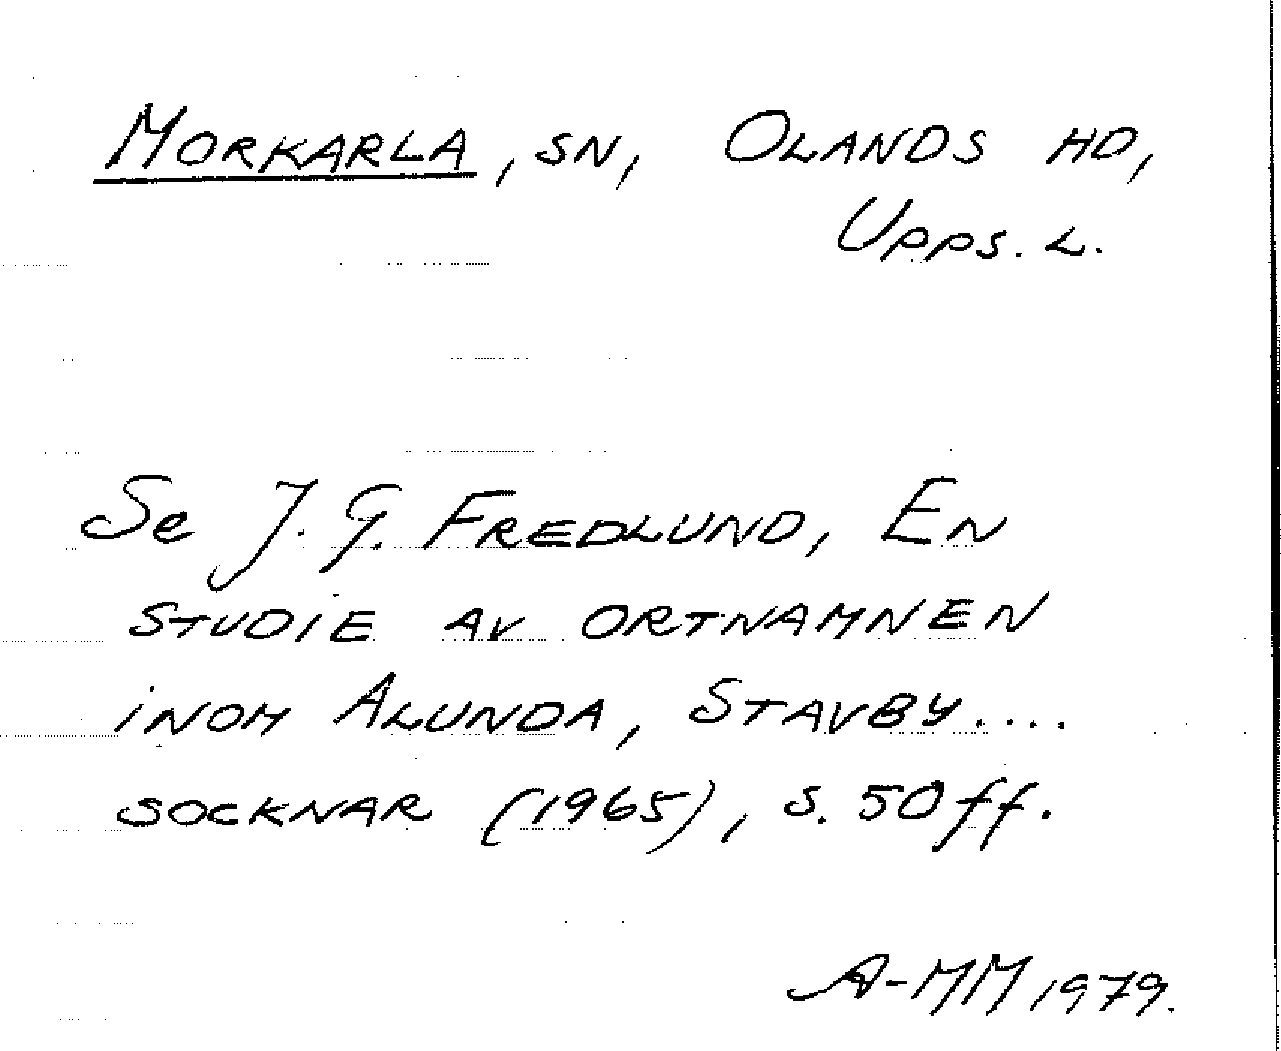 MORKARLA, SN, OLANDS HD,
UPPS. L.
Se J. G. FREDLUND, EN
STUDIE AV ORTNAMNEN
INOM ALUNDA, STAVBY....
SOCKNAR (1965), S. 50 ff.
A-MM 1979.